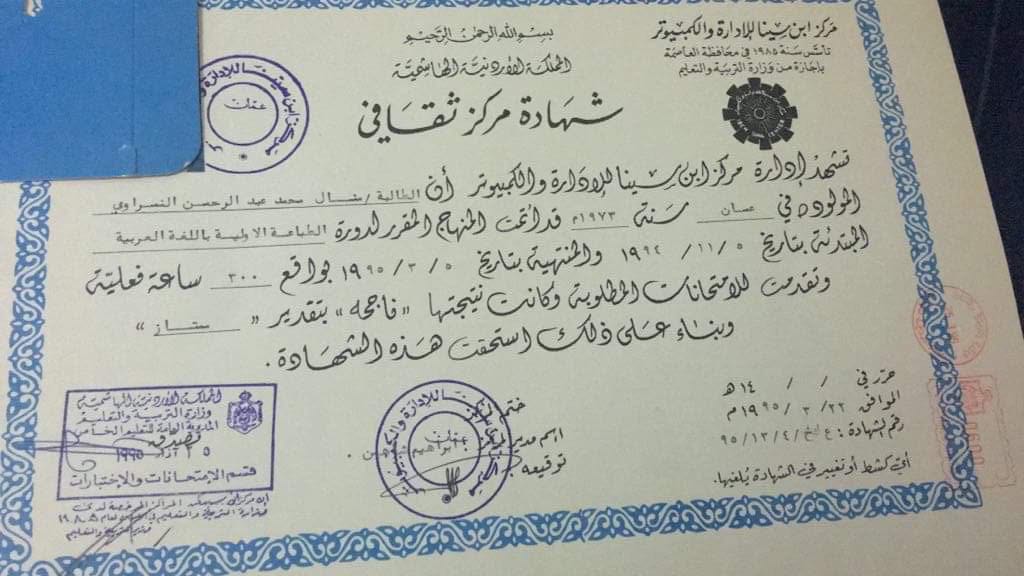 مركز ابن سينا للإدارة والكمبيوتر
تأسس سنة ١٩٨٥ في محافظة العاصمة
بإجازة من وزارة التربية والتعليم
بسم الله الرحمن الرحيم
المملكة الأردنية الهاشمية
شهادة مركز ثقافي
تشهد إدارة مركز ابن سينا للإدارة والكمبيوتر أن الطالبة / منال محمد عبد الرحمن النسراوي
المولودة في عمان سنة ١٩٧٣م قد أتمت المنهاج المقرر لدورة الطباعة الاولية باللغة العربية
المبتدئة بتاريخ ٥ / ١١ / ١٩٩٤ والمنتهية بتاريخ ٥ / ٣ / ١٩٩٥ بواقع ٣٠٠ ساعة فعلية
وتقدمت للامتحانات المطلوبة وكانت نتيجتها « ناجحة » بتقدير « ممتاز »
وبناء على ذلك استحقت هذه الشهادة .
حرر في / / ١٤ هـ
الموافق ٢٢ / ٣ / ١٩٩٥ م
رقم الشهادة : ٩٥/١٣/٤/
أي كشط أو تغيير في الشهادة يلغيها .
اسم مدير
توقيعه
مركز ابن سينا للإدارة والكمبيوتر
عمان
عمان
المملكة الأردنية الهاشمية
وزارة التربية والتعليم
المديرية العامة للتعليم الخاص
تصديق
١٩٩٥
قسم الامتحانات والاختبارات